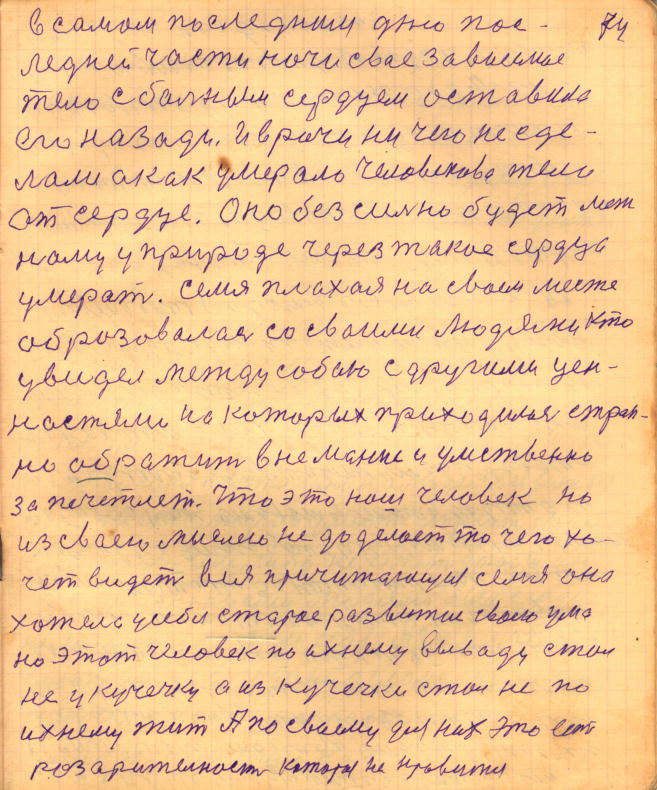 в самом последным дню пос- 74
ледней части ночи свае зависимое
тело с болным сердцем оставила
его назади. И врачи ни чего не сде-
лали а как умерало человеково тело
от сердце. Оно безсилно будет
ному у природе через такое сердца
умерат. Семя плахая на своем месте
образовалас со сваими людями кто
увидел между собаю с другими цен-
ностями на которых приходилося страш-
но обратит внемание и умственно
запечетлет. Что это наш человек но
из сваею мыслею не доделает то чего хо-
чет видет вся причитающия семя она
хотела у себя старое развитие своего ума
но этот человек по ихнему вываду стал
не у кучечку а из кучечки стал не по
ихнему жит А по своему для них это ест
розарителност которая не нравится